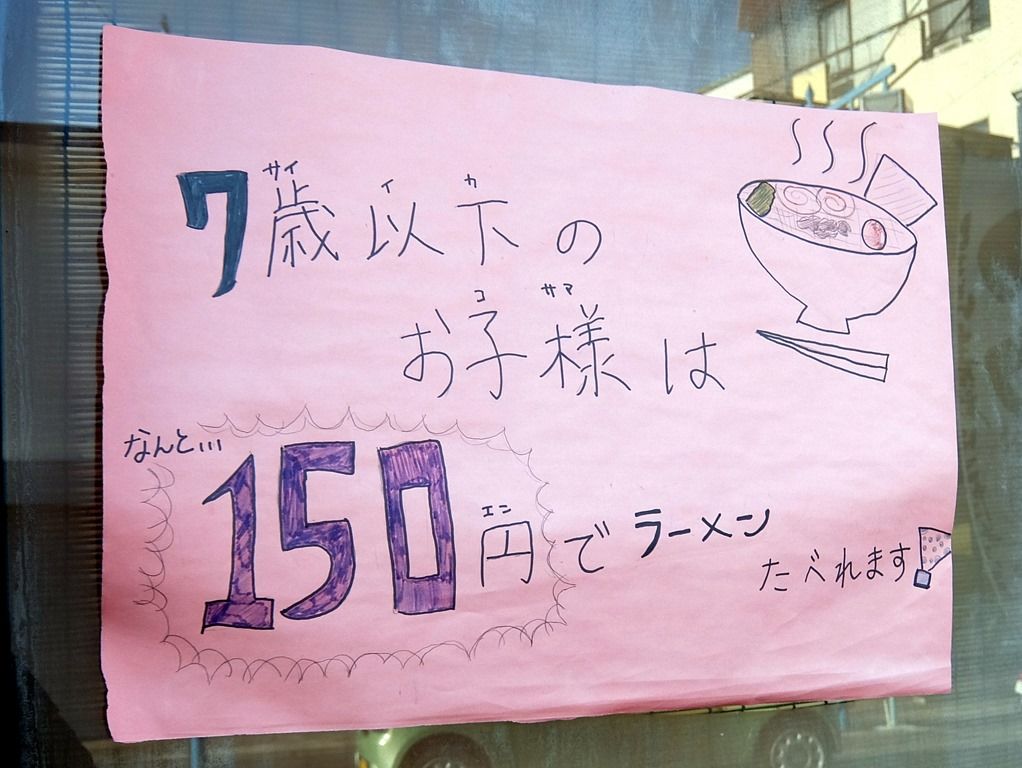 サイ イ カ
7歳以下の
コ サマ
お子様は
なんと...
エン
150円でラーメン
たべれます!